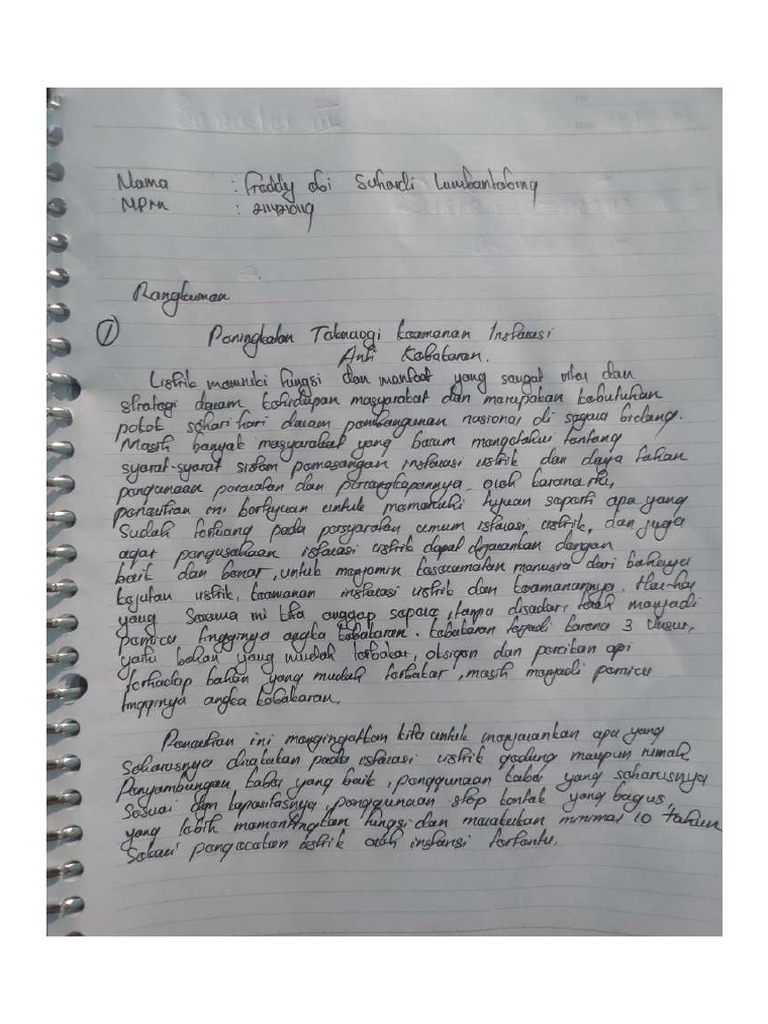 Nama : Freddy doi Suhardi Lumbantobing
NPM : 2114210119
Rangkuman
① Peningkatan Teknologi keamanan Instalasi
Anti Kebakaran.
Listrik memiliki fungsi dan manfaat yang sangat vital dan
strategi dalam kehidupan masyarakat dan merupakan kebutuhan
pokok sehari hari dalam pembangunan nasional di segala bidang.
Masih banyak masyarakat yang belum mengetahui tentang
syarat-syarat sistem pemasangan instalasi listrik dan daya tahan
pengunaan peralatan dan perlengkapannya. oleh karena itu,
penelitian ini bertujuan untuk memenuhi tujuan seperti apa yang
Sudah tertuang pada persyaratan umum istalasi listrik, dan juga
agar pengusahaan istalasi listrik dapat dijalankan dengan
baik dan benar, untuk menjamin keselamatan manusia dari bahaya
kejutan listrik, keamanan instalasi listrik dan keamanannya. Hal-hal
yang Selama ini kita anggap sepele, tanpa disadari, telah menjadi
pemicu tingginya angka kebakaran. kebakaran terjadi karena 3 Unsur,
yaitu bahan yang mudah terbakar, oksigen dan percikan api
terhadap bahan yang mudah terbakar, masih menjadi pemicu
tingginya angka kebakaran.
Penelitian ini mengingatkan kita untuk menjalankan apa yang
Seharusnya dilakukan pada istalasi listrik gedung maupun rumah.
Penyambungan kabel yang baik, penggunaan kabel yang seharusnya
Sesuai dgn kapasitasnya, penggunaan stop kontak yang bagus,
yang lebih mementingkan fungsi dan melakukan minimal 10 tahun
Sekali pengecatan listrik oleh instansi tertentu.